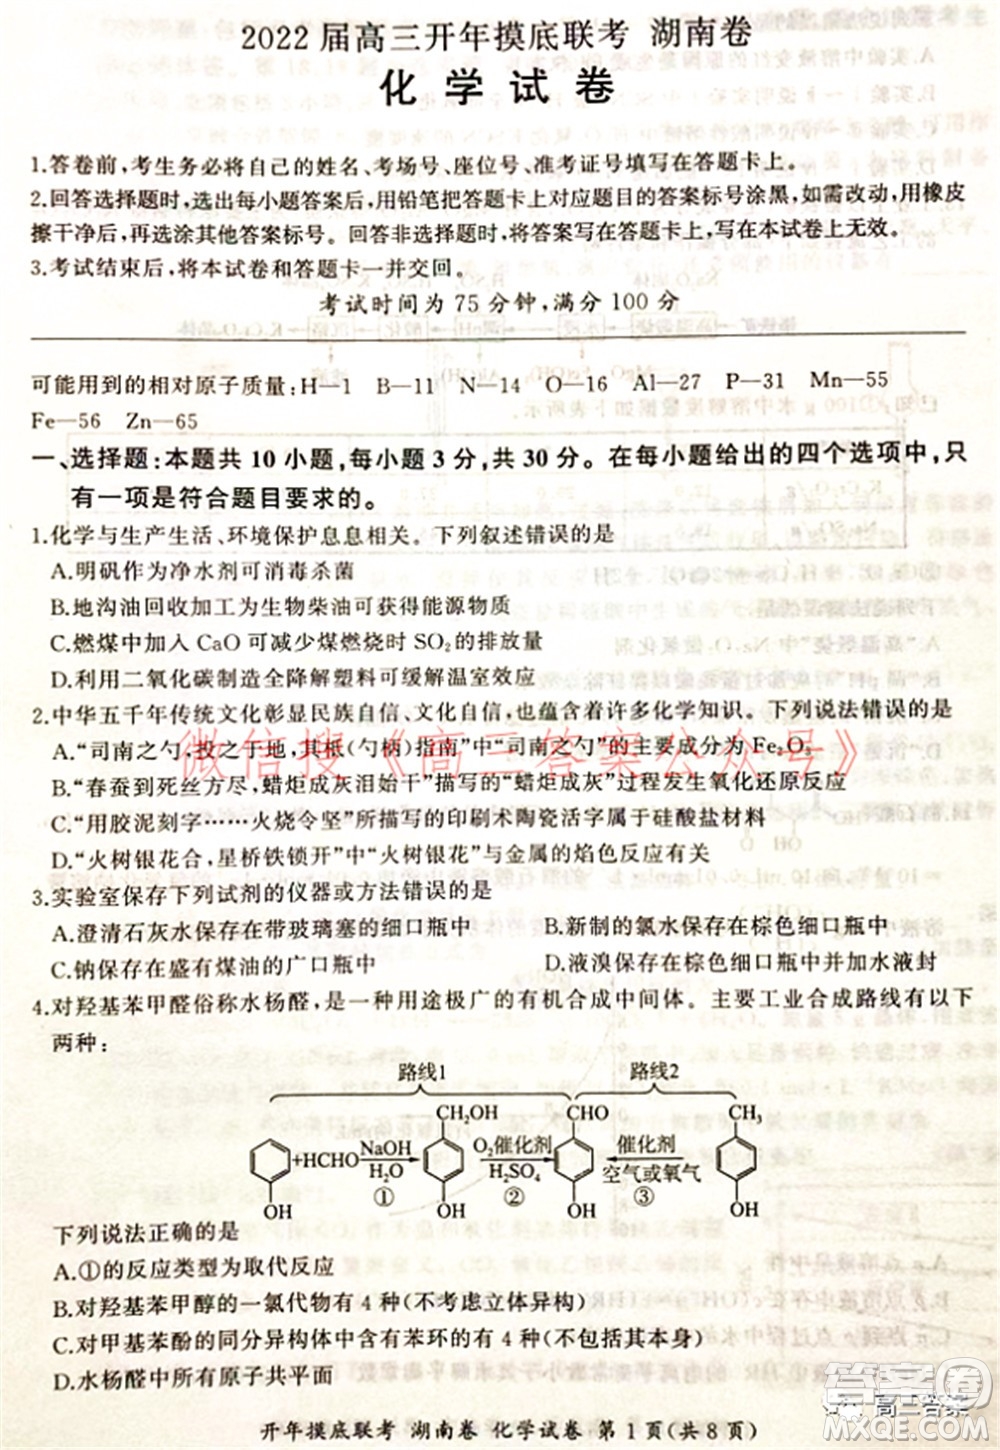 2022届高三开年摸底联考 湖南卷
化学试卷
1.答卷前,考生务必将自己的姓名、考场号、座位号、准考证号填写在答题卡上。
2.回答选择题时,选出每小题答案后,用铅笔把答题卡上对应题目的答案标号涂黑,如需改动,用橡皮
擦干净后,再选涂其他答案标号。回答非选择题时,将答案写在答题卡上,写在本试卷上无效。
3.考试结束后,将本试卷和答题卡一并交回。
考试时间为75分钟,满分100分
可能用到的相对原子质量:H—1 B—11 N—14 O—16 Al—27 P—31 Mn—55
Fe—56 Zn—65
一、选择题:本题共10小题,每小题3分,共30分。在每小题给出的四个选项中,只
有一项是符合题目要求的。
1.化学与生产生活、环境保护息息相关。下列叙述错误的是
A.明矾作为净水剂可消毒杀菌
B.地沟油回收加工为生物柴油可获得能源物质
C.燃煤中加入CaO可减少煤燃烧时SO₂的排放量
D.利用二氧化碳制造全降解塑料可缓解温室效应
2.中华五千年传统文化彰显民族自信、文化自信,也蕴含着许多化学知识。下列说法错误的是
A.“司南之勺,投之于地,其柢(勺柄)指南”中“司南之勺”的主要成分为Fe₂O₃
微信搜《高三答案公众号》
B.“春蚕到死丝方尽,蜡炬成灰泪始干”描写的“蜡炬成灰”过程发生氧化还原反应
C.“用胶泥刻字……火烧令坚”所描写的印刷术陶瓷活字属于硅酸盐材料
D.“火树银花合,星桥铁锁开”中“火树银花”与金属的焰色反应有关
3.实验室保存下列试剂的仪器或方法错误的是
A.澄清石灰水保存在带玻璃塞的细口瓶中 B.新制的氯水保存在棕色细口瓶中
C.钠保存在盛有煤油的广口瓶中 D.液溴保存在棕色细口瓶中并加水液封
4.对羟基苯甲醛俗称水杨醛,是一种用途极广的有机合成中间体。主要工业合成路线有以下
两种:
路线1 路线2
CH₂OH CHO CH₃
+HCHO NaOH H₂O ① O₂催化剂 H₂SO₄ ② 催化剂 空气或氧气 ③
OH OH OH OH
下列说法正确的是
A.①的反应类型为取代反应
B.对羟基苯甲醇的一氯代物有4种(不考虑立体异构)
C.对甲基苯酚的同分异构体中含有苯环的有4种(不包括其本身)
D.水杨醛中所有原子一定共平面
开年摸底联考 湖南卷 化学试卷 第1页(共8页)
高三答案